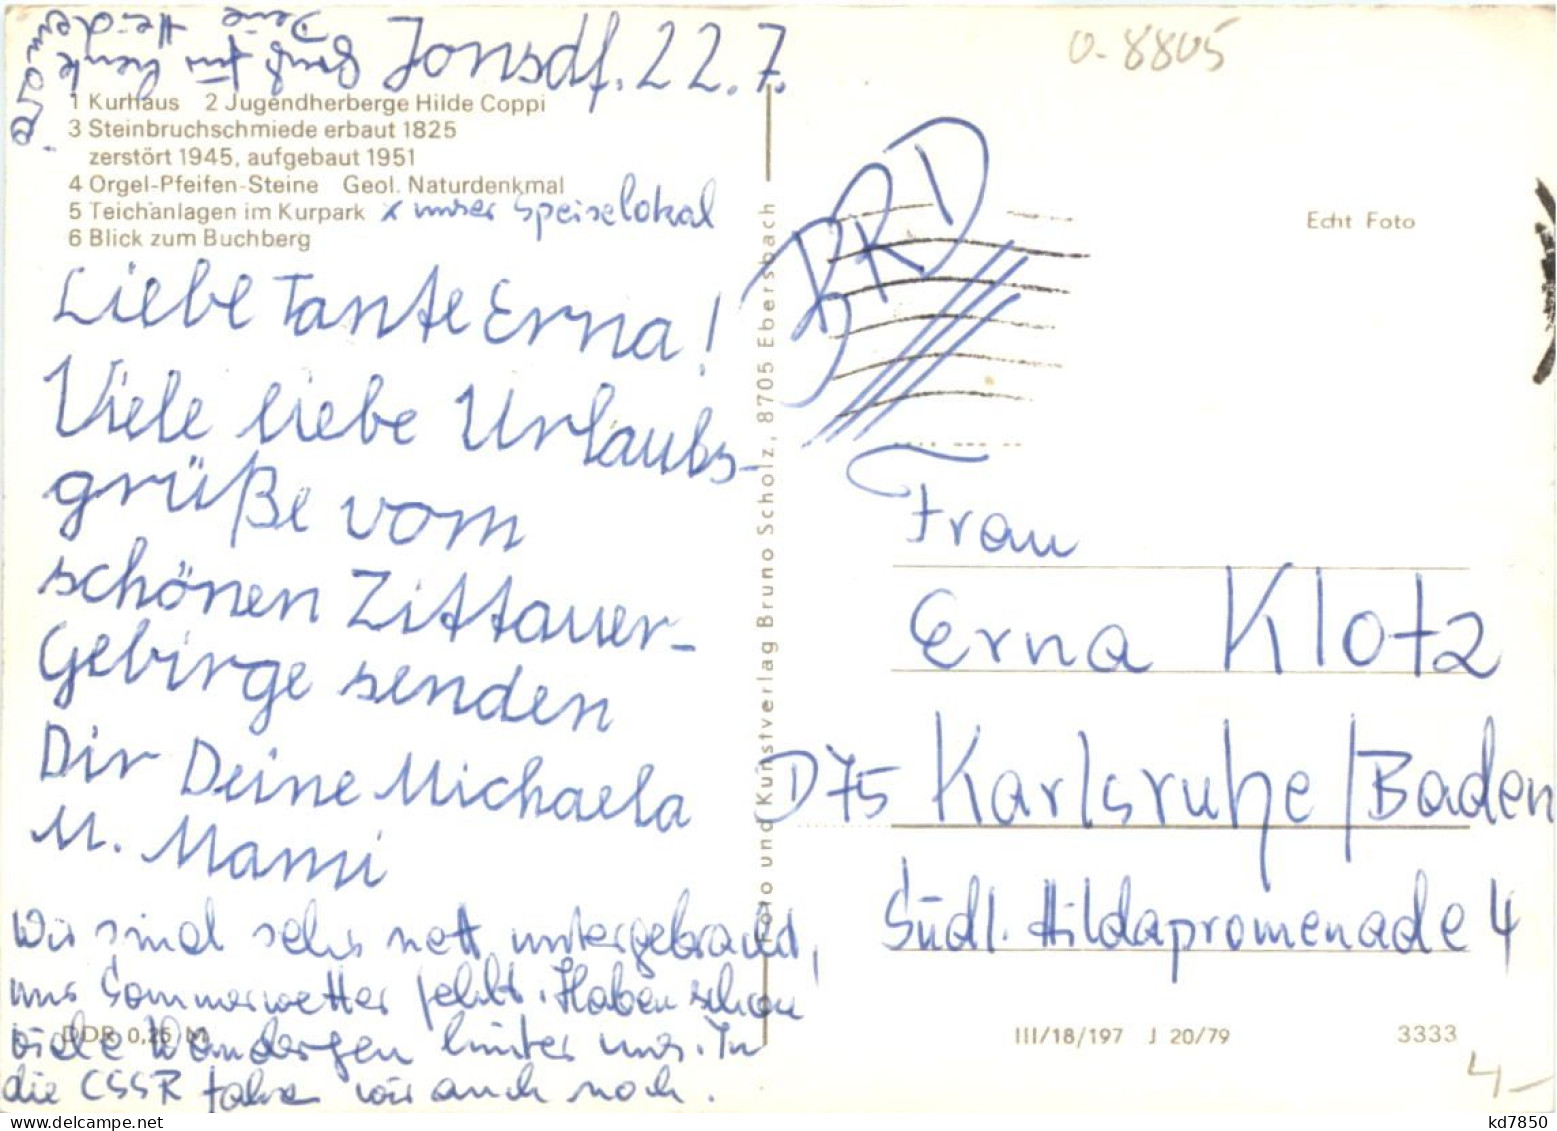 Jonsdf. 22. 7.
o-8805
1 Kurhaus 2 Jugendherberge Hilde Coppi
3 Steinbruchschmiede erbaut 1825
zerstört 1945, aufgebaut 1951
4 Orgel-Pfeifen-Steine Geol. Naturdenkmal
5 Teichanlagen im Kurpark x unser Speiselokal
6 Blick zum Buchberg
Liebe Tante Erna!
Viele liebe Urlaubs-
grüße vom
schönen Zittauer-
Gebirge senden
Dir Deine Michaela
u. Mami
Wir sind sehr nett untergebracht,
nur Sommerwetter fehlt. Haben schon
viele Wanderungen hinter uns. In
die CSSR fahren wir auch noch.
für
Deine
DDR 0,25 M
Foto und Kunstverlag Bruno Scholz, 8705 Ebersbach
BRD
Echt Foto
Frau
Erna Klotz
D 75 Karlsruhe/Baden
Südl. Hildapromenade 4
III/18/197 J 20/79
3333
4,-
kd7850